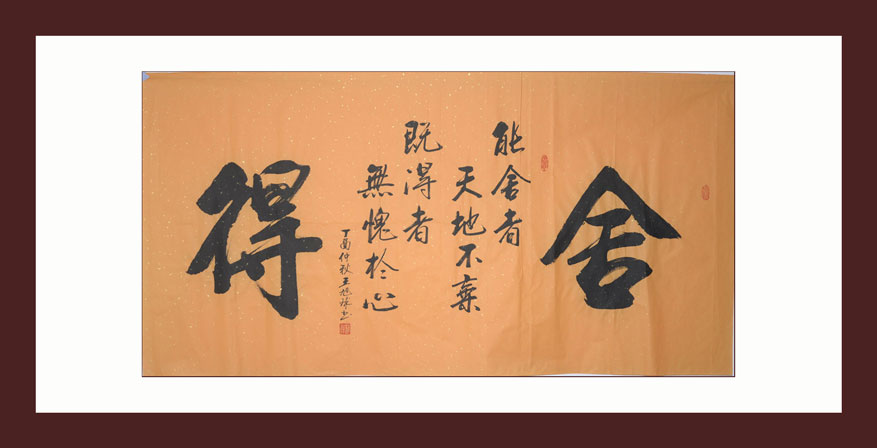 舍
能舍者
天地不棄
既得者
無愧於心
得
丁酉仲秋王旭祥书